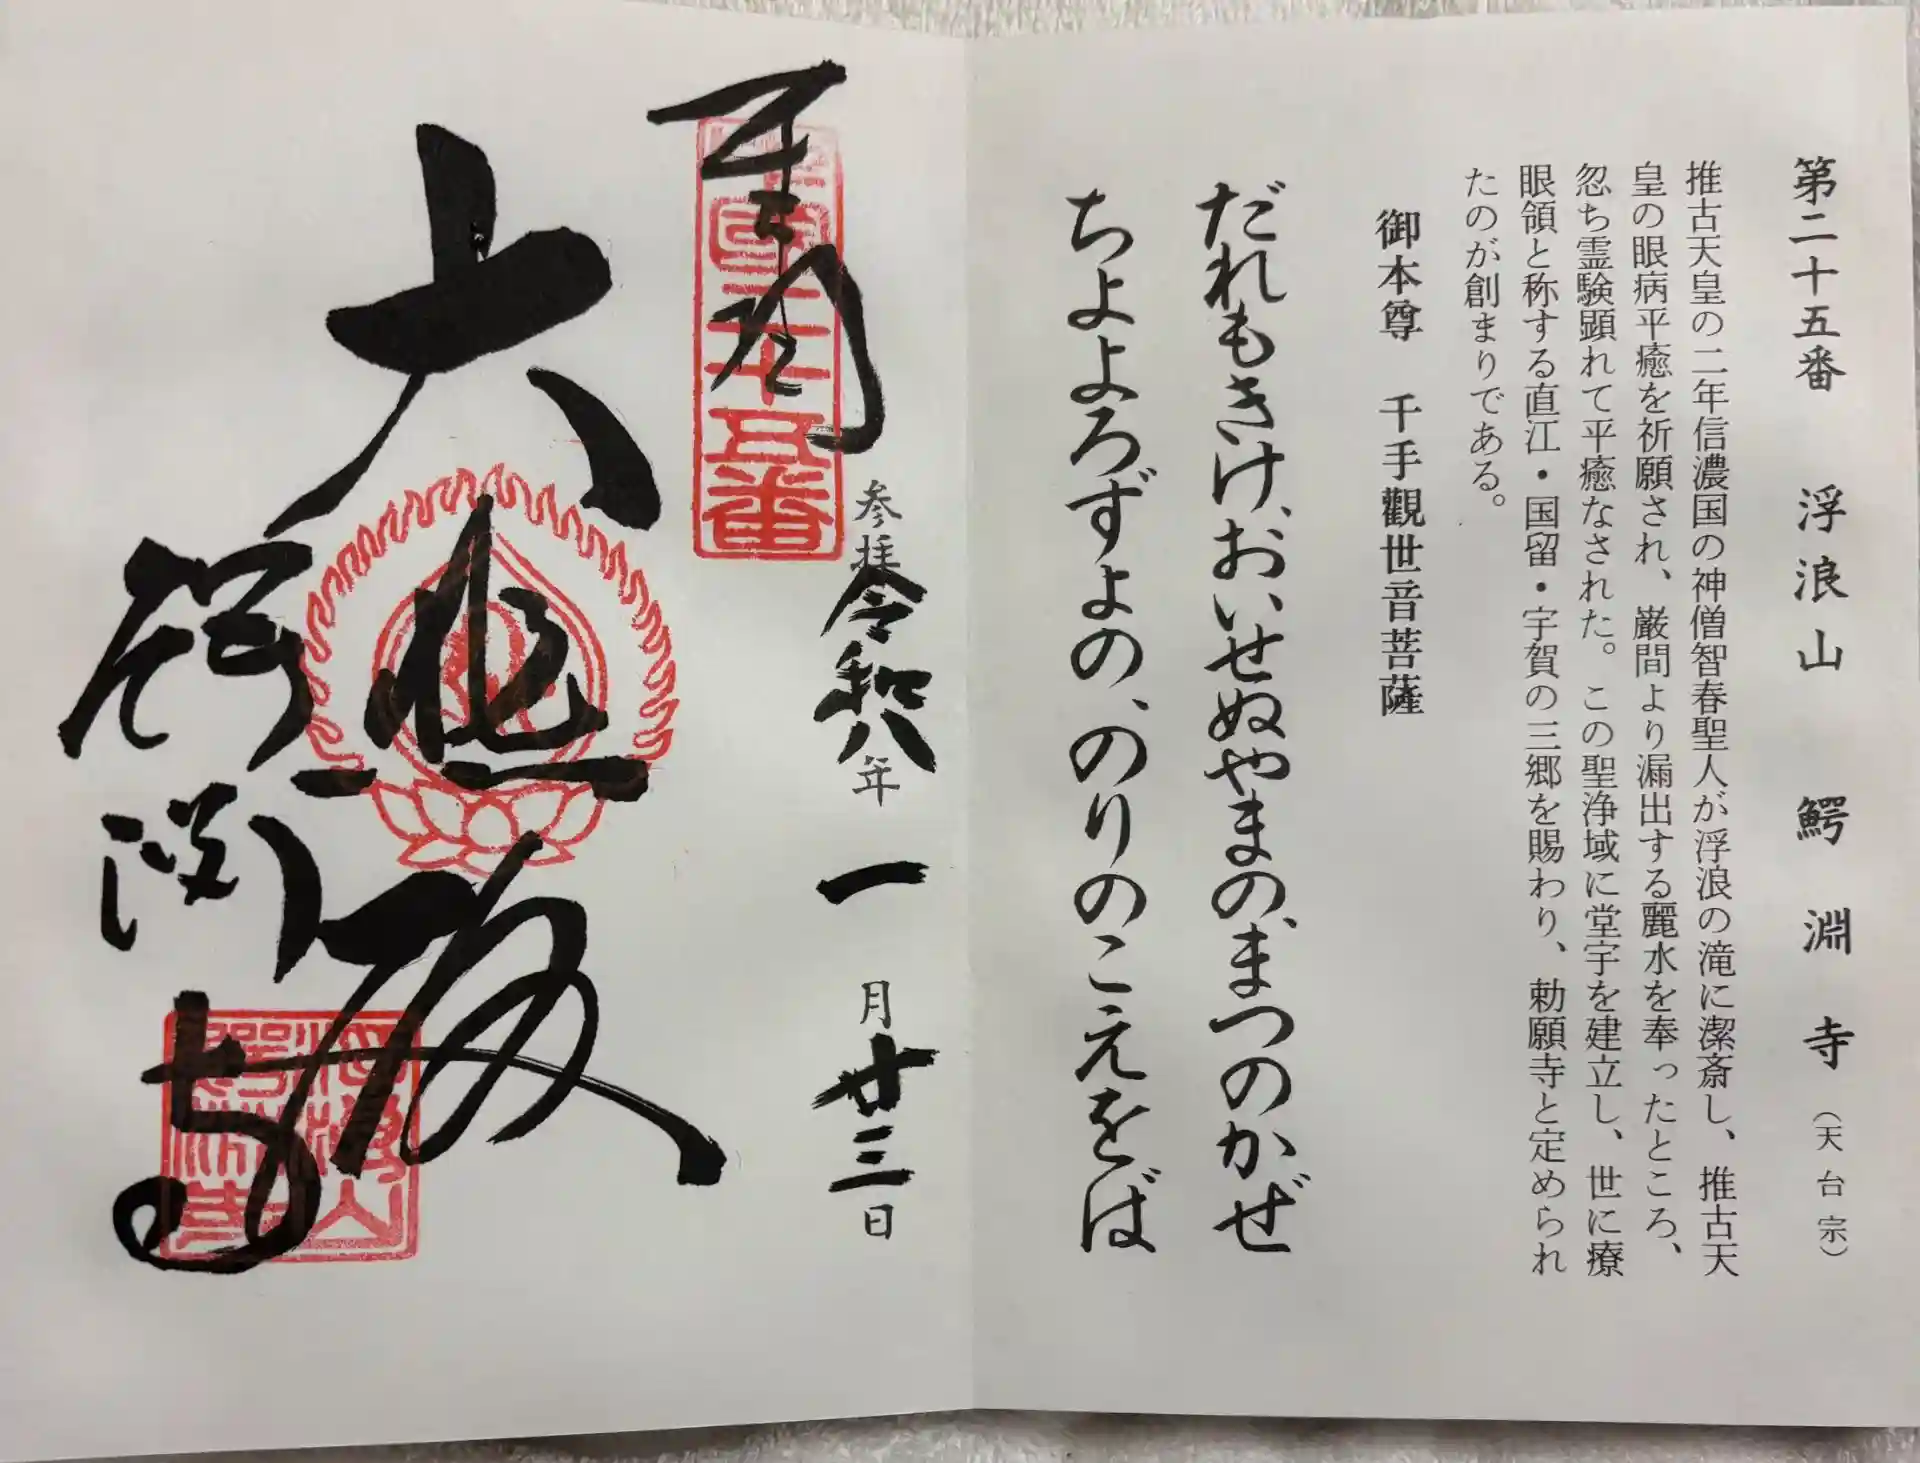 第二十五番 浮浪山 鰐淵寺(天台宗)
推古天皇の二年信濃国の神僧智春聖人が浮浪の滝に潔斎し、推古天
皇の眼病平癒を祈願され、巌間より漏出する麗水を奉ったところ、
忽ち霊験顕れて平癒なされた。この聖浄域に堂宇を建立し、世に療
眼領と称する直江・国留・宇賀の三郷を賜わり、勅願寺と定められ
たのが創まりである。
御本尊 千手觀世音菩薩
だれもきけ、おいせぬやまの、まつのかぜ
ちよよろずよの、のりのこえをば
奉拝
二十五番
参拝 令和八年 一月廿三日
大悲殿
鰐淵寺